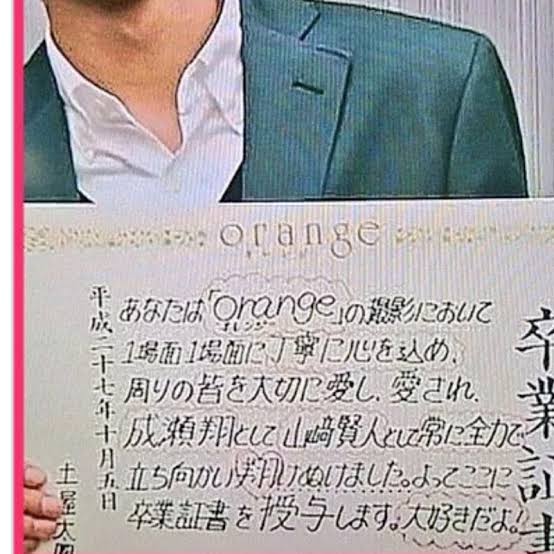 orange
卒業証書
あなたは「orange」の撮影において
オレンジ
1場面1場面に丁寧に心を込め、
周りの皆を大切に愛し、愛され、
成瀬翔として山﨑賢人として常に全力で
立ち向かい翔けぬけました。よってここに
卒業証書を授与します。大好きだよ!
平成二十七年十月五日
土屋太鳳